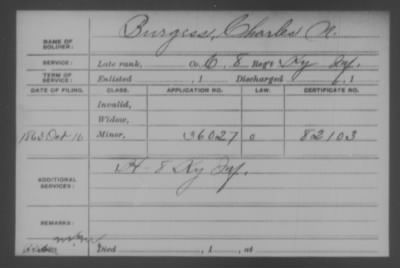 NAME OF SOLDIER: Burgess, Charles N.
SERVICE: Late rank, Co. C, 8 Reg't Ky Inf.
TERM OF SERVICE: Enlisted , 1 Discharged , 1
DATE OF FILING. CLASS. APPLICATION NO. LAW. CERTIFICATE NO.
Invalid,
Widow,
1863 Oct 16 Minor, 36027 0 82103
ADDITIONAL SERVICES: H- 8 Ky Inf.
REMARKS:
Died , 1 , at